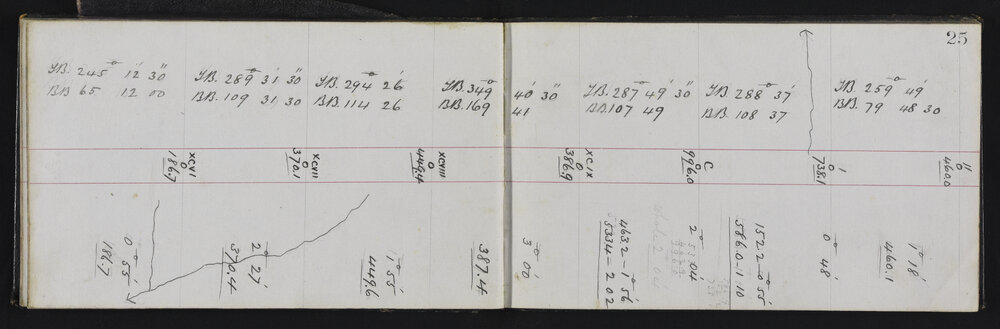 25
F.B. 245° 12' 30"
B.B 65 12 00
F.B. 289° 31' 30"
B.B. 109 31 30
F.B. 294° 26'
B.B. 114 26
F.B. 349° 40' 30"
B.B. 169 41
F.B. 287° 49' 30"
B.B. 107 49
F.B. 288° 37'
B.B. 108 37
F.B. 259° 49'
B.B. 79 48 30
XCVI
0
186.7
XCVII
0
370.1
XCVIII
0
449.4
XCIX
0
386.9
C
0
996.0
I
0
738.1
II
0
460.0
0° 55'
186.7
2° 27'
370.4
1° 55'
449.6
387.4
3° 00'
4632 - 1° 56'
5334 - 2 02
2° 04'
1522 - 0° 55'
5860 - 1 10
0° 48'
1° 18'
460.1